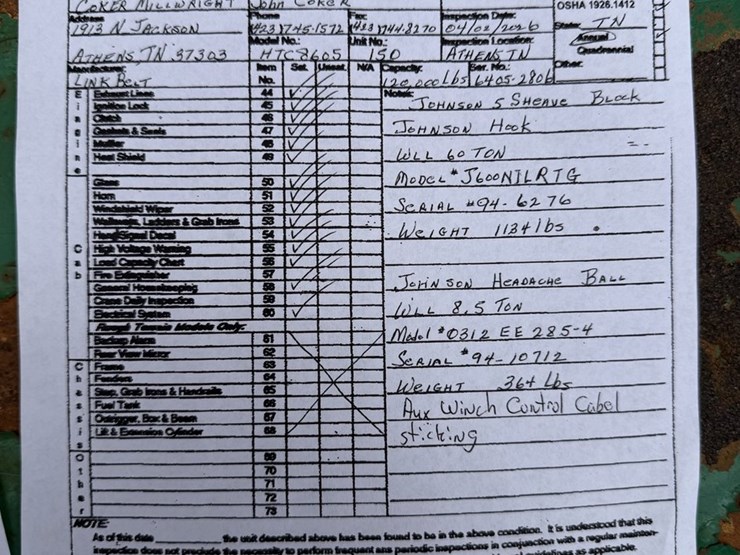 COKER MILLWRIGHT John COKER
OSHA 1926.1412
Address: Phone Fax: Inspection Date:
1913 N JACKSON (423)745-1572 (423)744-8270 04/02/2026 State: TN
Model No.: Unit No.: Inspection Location: Annual
ATHENS, TN 37303 HTC 8605 150 ATHENS TN Quadrennial
Manufacturer: Item Sat. Unsat. N/A Capacity: Ser. No.: Other:
LINK BELT No. 120,000 Lbs 6405-2806
E Exhaust Lines 44 Notes: JOHNSON 5 SHEAVE BLOCK
i Ignition Lock 45
Clutch 46 JOHNSON HOOK
Gaskets & Seals 47
i Muffler 48 WLL 60 TON
n Heat Shield 49
e MODEL # J600NILRTG
Glass 50
Horn 51 SERIAL #94-6276
Windshield Wiper 52
Walkways, Ladders & Grab Irons 53
Hand Signal Decal 54 WEIGHT 1134 lbs
C High Voltage Warning 55
a Load Capacity Chart 56
b Fire Extinguisher 57 JOHNSON HEADACHE BALL
General Housekeeping 58
Crane Daily Inspection 59 WLL 8.5 TON
Electrical System 60
Rough Terrain Models Only: Model #0312 EE 285-4
Backup Alarm 61
Rear View Mirror 62 SERIAL #94-10712
C Frame 63
h Fenders 64 WEIGHT 364 Lbs
a Step, Grab Irons & Handrails 65
s Fuel Tank 66 Aux Winch Control Cabel
s Outrigger, Box & Beam 67
i Lift & Extension Cylinder 68 sticking
s
O 69
t 70
h 71
e 72
r 73
NOTE:
As of this date ________ the unit described above has been found to be in the above condition. It is understood that this
inspection does not preclude the necessity to perform frequent and periodic inspections in conjunction with a regular mainten-
guidelines as applicable.